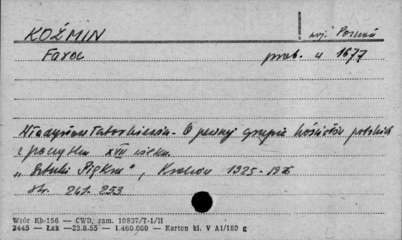 KOŹMIN
woj. Poznań
Fara
prob. u 1677
Władysław Tatarkiewicz - O pewnej grupie kościołów polskich
z początku XVII wieku.
„Sztuki Piękne", Kraków 1925-1926
str. 241. 253
Wzór Kb-156 — CWD, zam. 10837/T-1/H
2445 — Łak — 23.8.55 — 1.460.000 — Karton kl. V A1/180 g